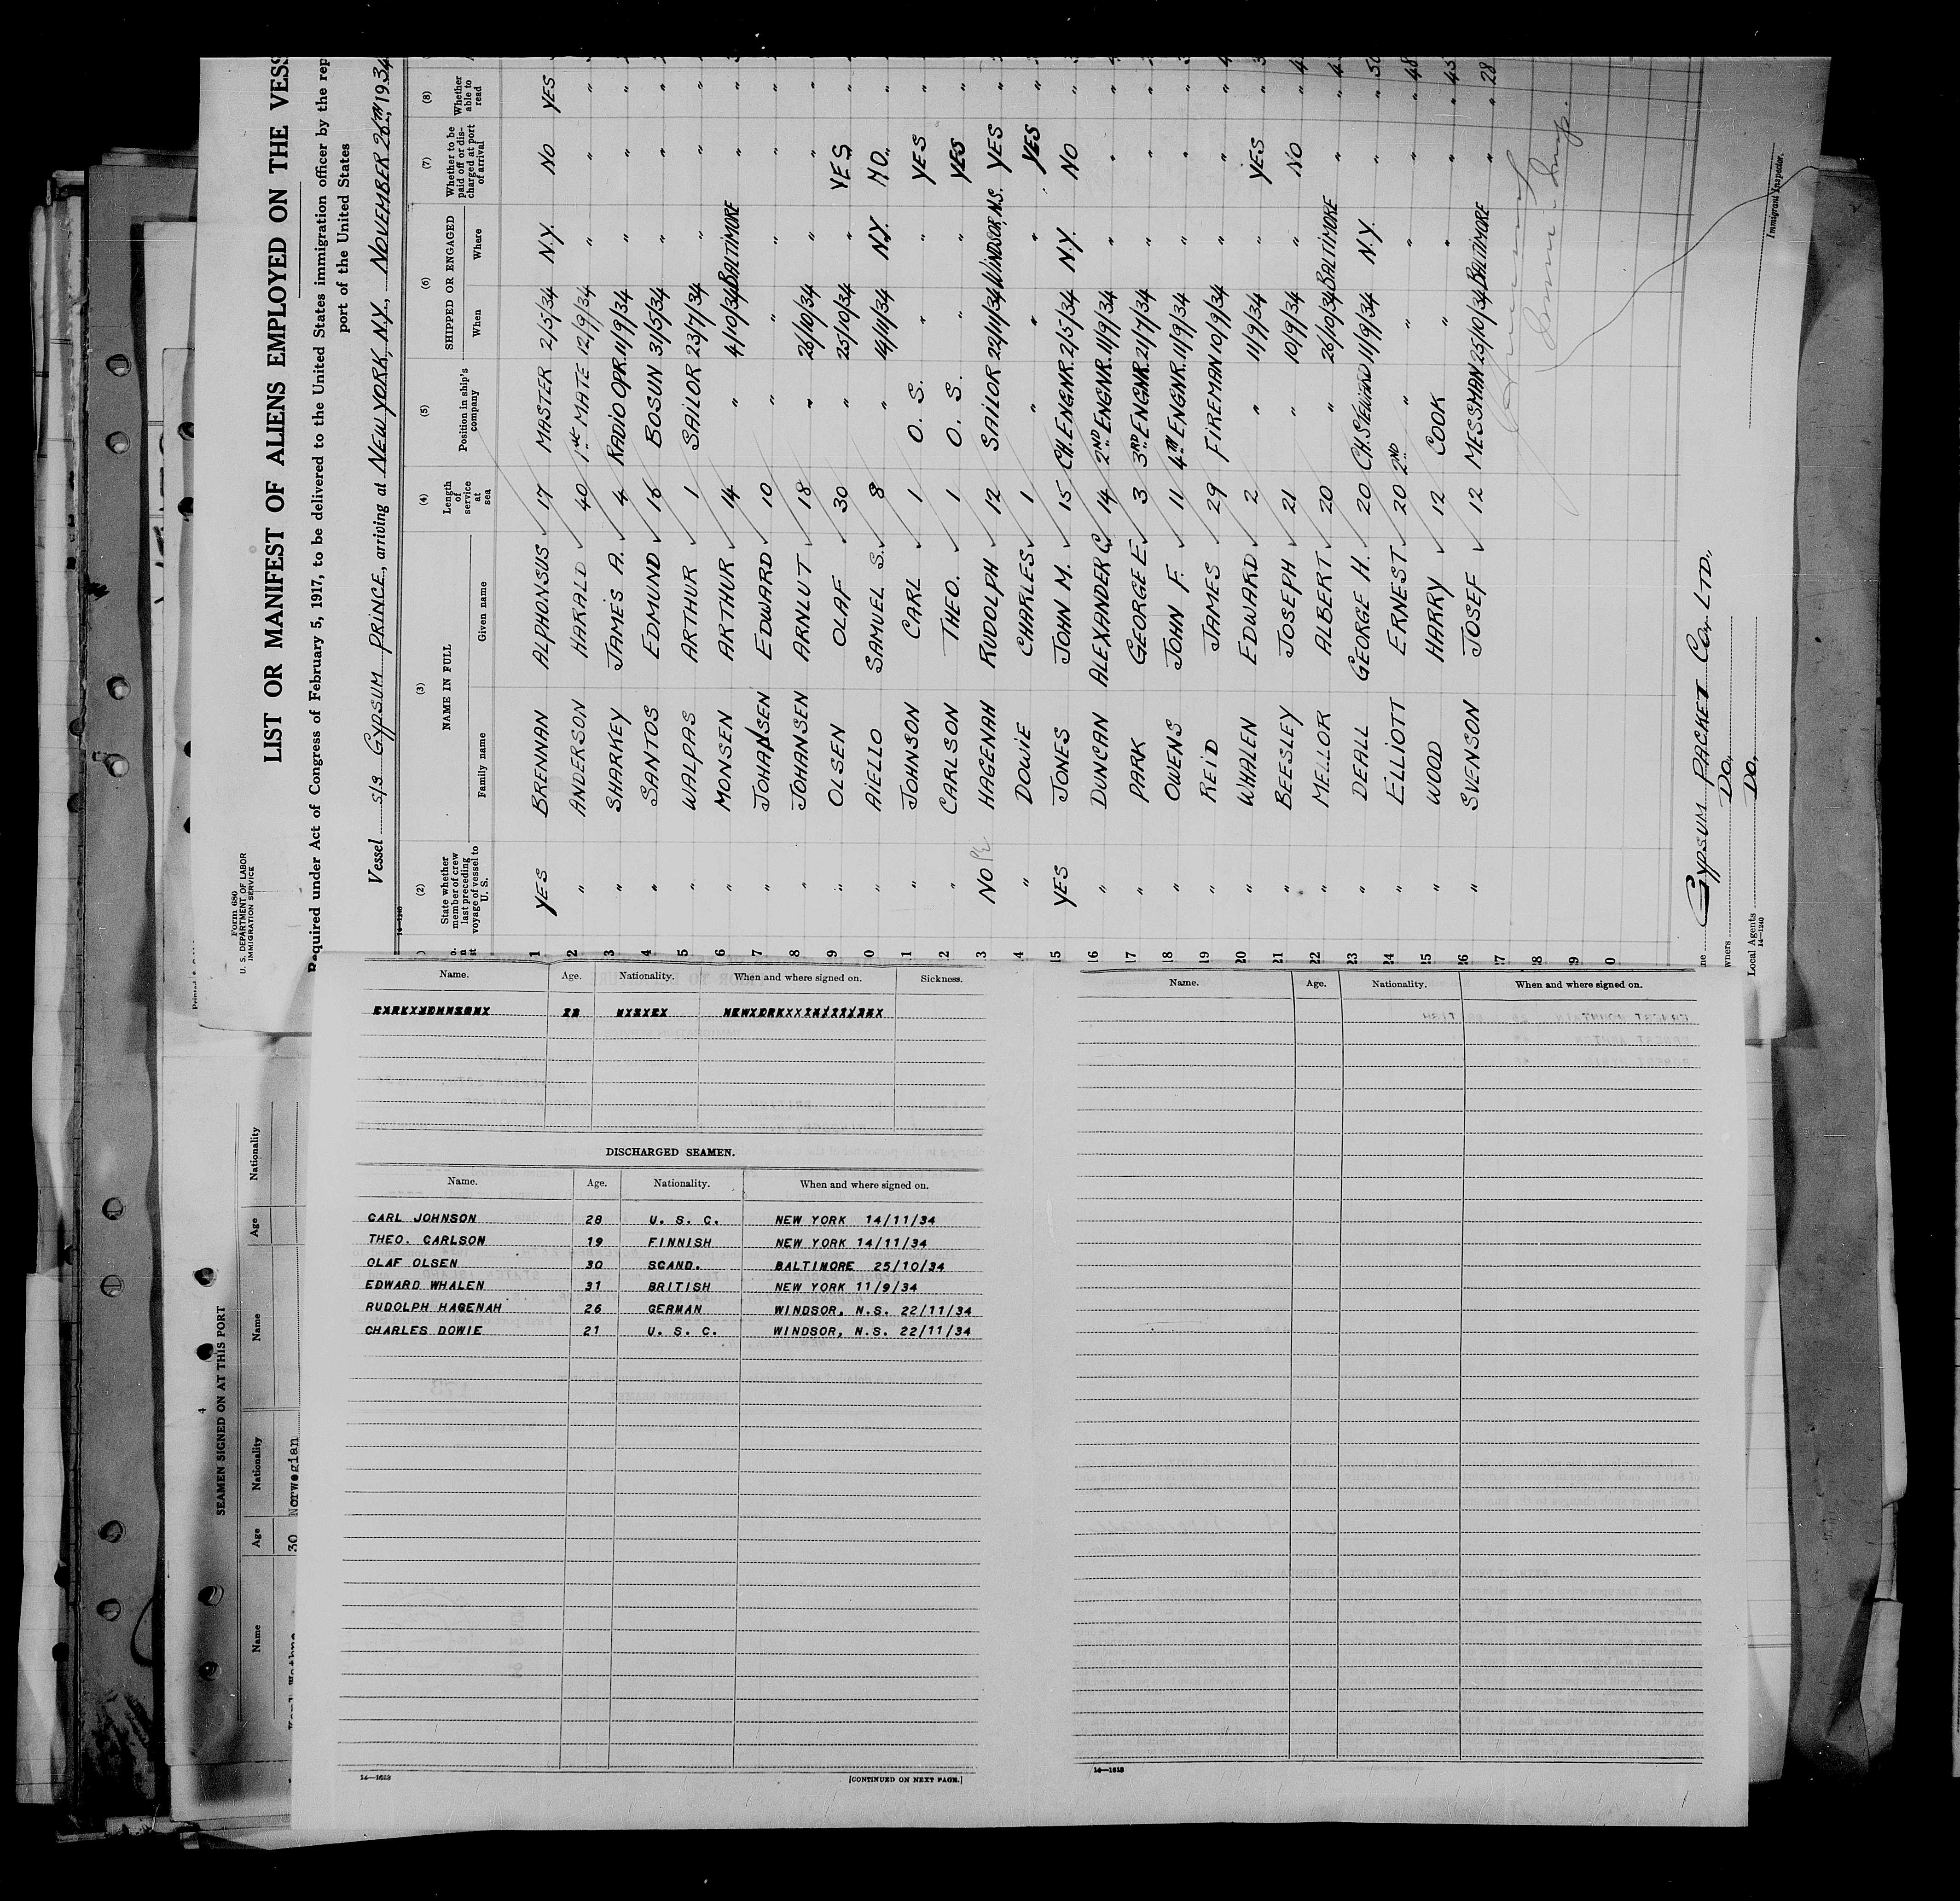 Form 680
U. S. DEPARTMENT OF LABOR
IMMIGRATION SERVICE
LIST OR MANIFEST OF ALIENS EMPLOYED ON THE VESS
Required under Act of Congress of February 5, 1917, to be delivered to the United States immigration officer by the rep
port of the United States
Vessel S/S GYPSUM PRINCE, arriving at NEW YORK, N.Y., NOVEMBER 26TH, 1934
14—1240
(2) (3) (4) (5) (6) (7) (8)
State whether member of crew last preceding voyage of vessel to U. S. NAME IN FULL Length of service at sea Position in ship's company SHIPPED OR ENGAGED Whether to be paid off or discharged at port of arrival Whether able to read
Family name Given name When Where
1 YES BRENNAN ALPHONSUS 17 MASTER 2/5/34 N.Y. NO YES
2 " ANDERSON HARALD 40 1st MATE 12/9/34 " " "
3 " SHARKEY JAMES A. 4 RADIO OPR. 11/9/34 " " "
4 " SANTOS EDMUND 16 BOSUN 31/5/34 " " "
5 " WALPAS ARTHUR 1 SAILOR 23/7/34 " " "
6 " MONSEN ARTHUR 14 " 4/10/34 BALTIMORE " "
7 " JOHANSEN EDWARD 10 " " " " "
8 " JOHANSEN ARNLUT 18 " 26/10/34 " " "
9 " OLSEN OLAF 30 " 25/10/34 " YES "
0 " AIELLO SAMUEL S. 8 " 14/11/34 N.Y. NO "
1 " JOHNSON CARL 1 O. S. " " YES "
2 " CARLSON THEO. 1 O. S. " " YES "
3 NO HAGENAH RUDOLPH 12 SAILOR 22/11/34 WINDSOR, N.S. YES "
4 " DOWIE CHARLES 1 " " " YES "
15 YES JONES JOHN M. 15 CH. ENGNR. 2/5/34 N.Y. NO "
16 " DUNCAN ALEXANDER C. 14 2ND ENGNR. 11/9/34 " " "
17 " PARK GEORGE E. 3 3RD ENGNR. 21/7/34 " " "
18 " OWENS JOHN F. 11 4TH ENGNR. 11/9/34 " " "
19 " REID JAMES 29 FIREMAN 10/9/34 " " "
20 " WHALEN EDWARD 2 " 11/9/34 " YES "
21 " BEESLEY JOSEPH 21 " 10/9/34 " NO "
22 " MELLOR ALBERT 20 " 26/10/34 BALTIMORE " "
23 " DEALL GEORGE H. 20 CH. STEWARD 11/9/34 N.Y. " "
24 " ELLIOTT ERNEST 20 2ND " " " " "
25 " WOOD HARRY 12 COOK " " " " 45
26 " SVENSON JOSEF 12 MESSMAN 25/10/34 BALTIMORE " " 28
27
28
9
0
Immigrant Inspector.
GYPSUM PACKET CO. LTD.
wners DO.
Local Agents DO.
14—1240
Name. Age. Nationality. When and where signed on. Sickness.
DISCHARGED SEAMEN.
Name. Age. Nationality. When and where signed on.
CARL JOHNSON 28 U. S. C. NEW YORK 14/11/34
THEO. CARLSON 19 FINNISH NEW YORK 14/11/34
OLAF OLSEN 30 SCAND. BALTIMORE 25/10/34
EDWARD WHALEN 31 BRITISH NEW YORK 11/9/34
RUDOLPH HAGENAH 26 GERMAN WINDSOR, N.S. 22/11/34
CHARLES DOWIE 21 U. S. C. WINDSOR, N.S. 22/11/34
14—1613
[CONTINUED ON NEXT PAGE.]
Name. Age. Nationality. When and where signed on.
14—1613
4
SEAMEN SIGNED ON AT THIS PORT
Name Age Nationality Name Age Nationality
30 Norwegian